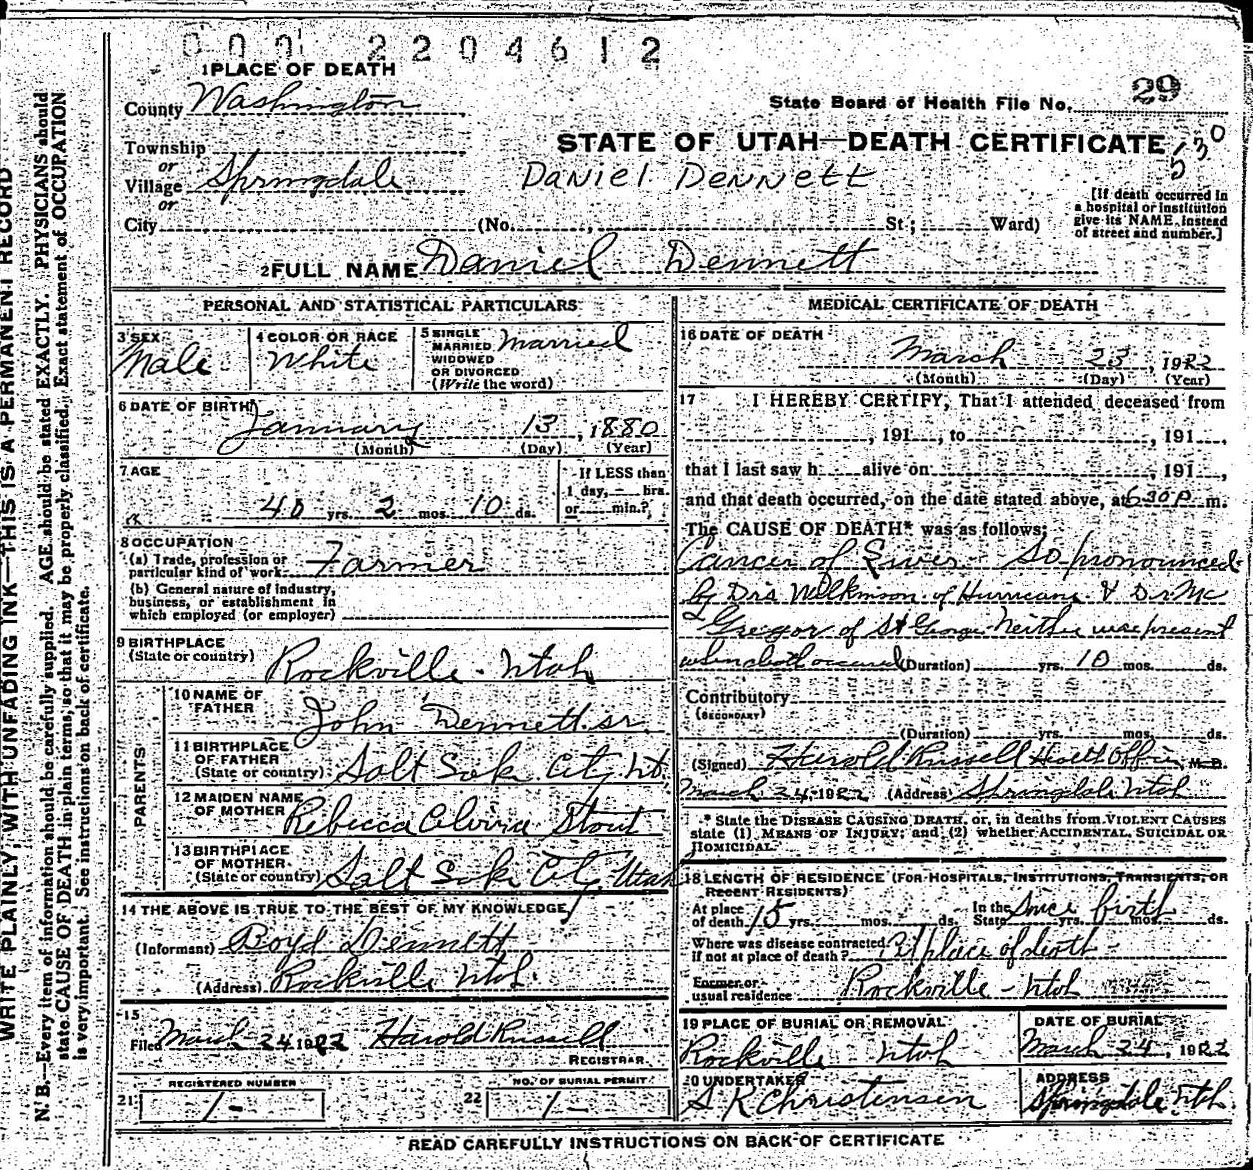 000 2204612
1 PLACE OF DEATH
County Washington
State Board of Health File No. 29
Township
or
Village Springdale
or
City (No. St; Ward)
STATE OF UTAH—DEATH CERTIFICATE
530
Daniel Dennett
[If death occurred in a hospital or institution give its NAME, instead of street and number.]
2 FULL NAME Daniel Dennett
PERSONAL AND STATISTICAL PARTICULARS
3 SEX Male
4 COLOR OR RACE White
5 SINGLE MARRIED WIDOWED OR DIVORCED (Write the word) Married
6 DATE OF BIRTH January 13, 1880
(Month) (Day) (Year)
7 AGE 40 yrs. 2 mos. 10 ds.
If LESS than 1 day, hrs. or min.?
8 OCCUPATION
(a) Trade, profession or particular kind of work Farmer
(b) General nature of industry, business, or establishment in which employed (or employer)
9 BIRTHPLACE (State or country) Rockville - Utah
PARENTS
10 NAME OF FATHER John Dennett sr.
11 BIRTHPLACE OF FATHER (State or country) Salt Lake City, Ut.
12 MAIDEN NAME OF MOTHER Rebecca Stout
13 BIRTHPLACE OF MOTHER (State or country) Salt Lake City, Utah
14 THE ABOVE IS TRUE TO THE BEST OF MY KNOWLEDGE
(Informant) Boyd Dennett
(Address) Rockville Utah.
15
Filed March 24 1922 Harold Russell
REGISTRAR
REGISTERED NUMBER
21 1-
NO. OF BURIAL PERMIT
22 1-
MEDICAL CERTIFICATE OF DEATH
16 DATE OF DEATH
March 23, 1922
(Month) (Day) (Year)
17 I HEREBY CERTIFY, That I attended deceased from
, 191 , to , 191 ,
that I last saw h alive on 191 ,
and that death occurred, on the date stated above, at 6:30 P m.
The CAUSE OF DEATH* was as follows:
Cancer of Liver so pronounced
by Drs Wilkinson of Hurricane & Dr Mc
Gregor of St George Neither was present
when death occured (Duration) yrs. 10 mos. ds.
Contributory
(SECONDARY)
(Duration) yrs. mos. ds.
(Signed) Harold Russell Health Officer, M.D.
March 24, 1922 (Address) Springdale Utah
* State the DISEASE CAUSING DEATH, or, in deaths from VIOLENT CAUSES state (1) MEANS OF INJURY; and (2) whether ACCIDENTAL, SUICIDAL OR HOMICIDAL.
18 LENGTH OF RESIDENCE (FOR HOSPITALS, INSTITUTIONS, TRANSIENTS, OR RECENT RESIDENTS)
At place of death 15 yrs. mos. ds. In the State Since birth yrs. mos. ds.
Where was disease contracted if not at place of death? At place of death -
Former or usual residence Rockville - Utah
19 PLACE OF BURIAL OR REMOVAL
Rockville Utah
DATE OF BURIAL
March 24, 1922
20 UNDERTAKER
S K Christensen
ADDRESS
Springdale Utah.
READ CAREFULLY INSTRUCTIONS ON BACK OF CERTIFICATE
WRITE PLAINLY, WITH UNFADING INK—THIS IS A PERMANENT RECORD
N. B.—Every item of information should be carefully supplied. AGE should be stated EXACTLY. PHYSICIANS should
state CAUSE OF DEATH in plain terms, so that it may be properly classified. Exact statement of OCCUPATION
is very important. See instructions on back of certificate.